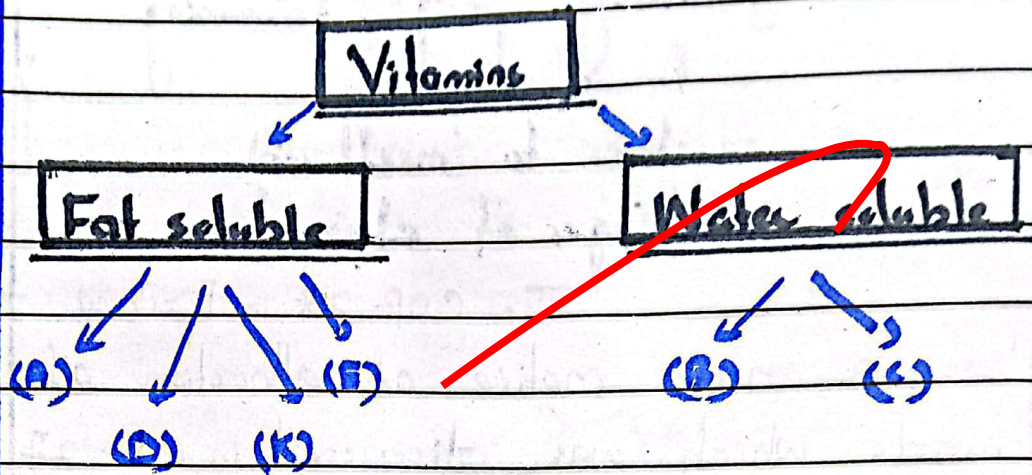 Vitamins
Fat soluble Water soluble
(A) (E) (B) (C)
(D) (K)